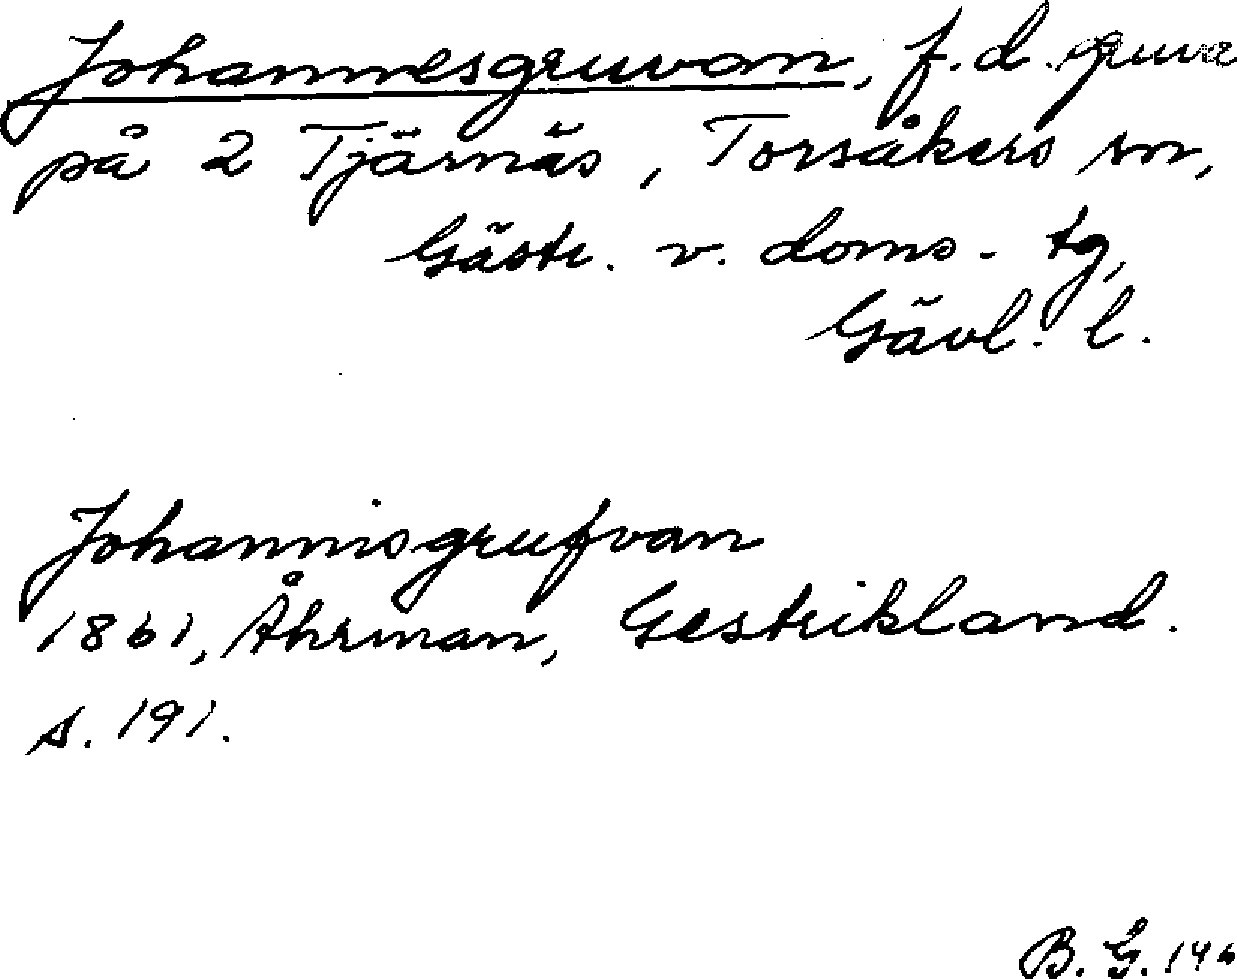 Johannesgruvan, f.d. gruva
på 2 Tjärnäs, Torsåkers sn,
Gästr. v. doms. tg,
Gävl. l.
Johannisgrufvan
1861, Åhrman, Gestrikland.
s. 191.
B. G. 146